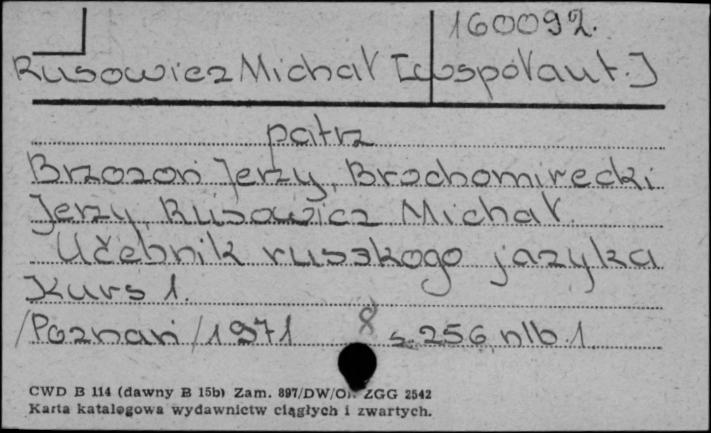 160092.
Rusowicz Michał [współaut.]
patrz
Brzozoń Jerzy, Brochomirecki
Jerzy, Rusowicz Michał.
Učebnik russkogo jazyka
Kurs 1.
/Poznań/1971 8 s. 256, nlb. 1
CWD B 114 (dawny B 15b) Zam. 897/DW/O ZGG 2542
Karta katalogowa wydawnictw ciągłych i zwartych.